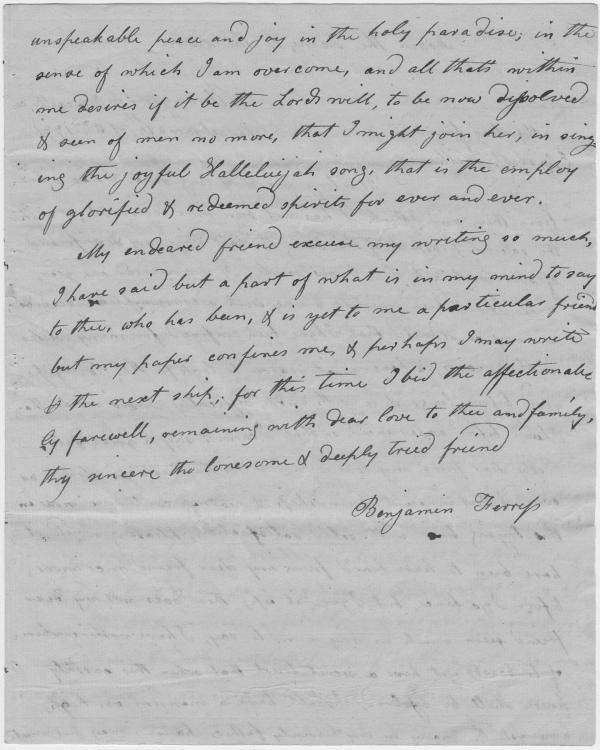 unspeakable peace and joy in the holy paradise; in the
sense of which I am overcome, and all that's within
me desires if it be the Lords will, to be now dissolved
& seen of men no more, that I might join her, in sing
ing the joyful Hallelujah song, that is the employ
of glorified & redeemed spirits for ever and ever.
My endeared friend excuse my writing so much,
I have said but a part of what is in my mind to say
to thee, who has been, & is yet to me a particular friend
but my paper confines me, & perhaps I may write
the next ship; for this time I bid the affectionate
ly farewell, remaining with dear love to thee and family,
thy sincere tho lonesome & deeply tried friend
Benjamin Ferriss